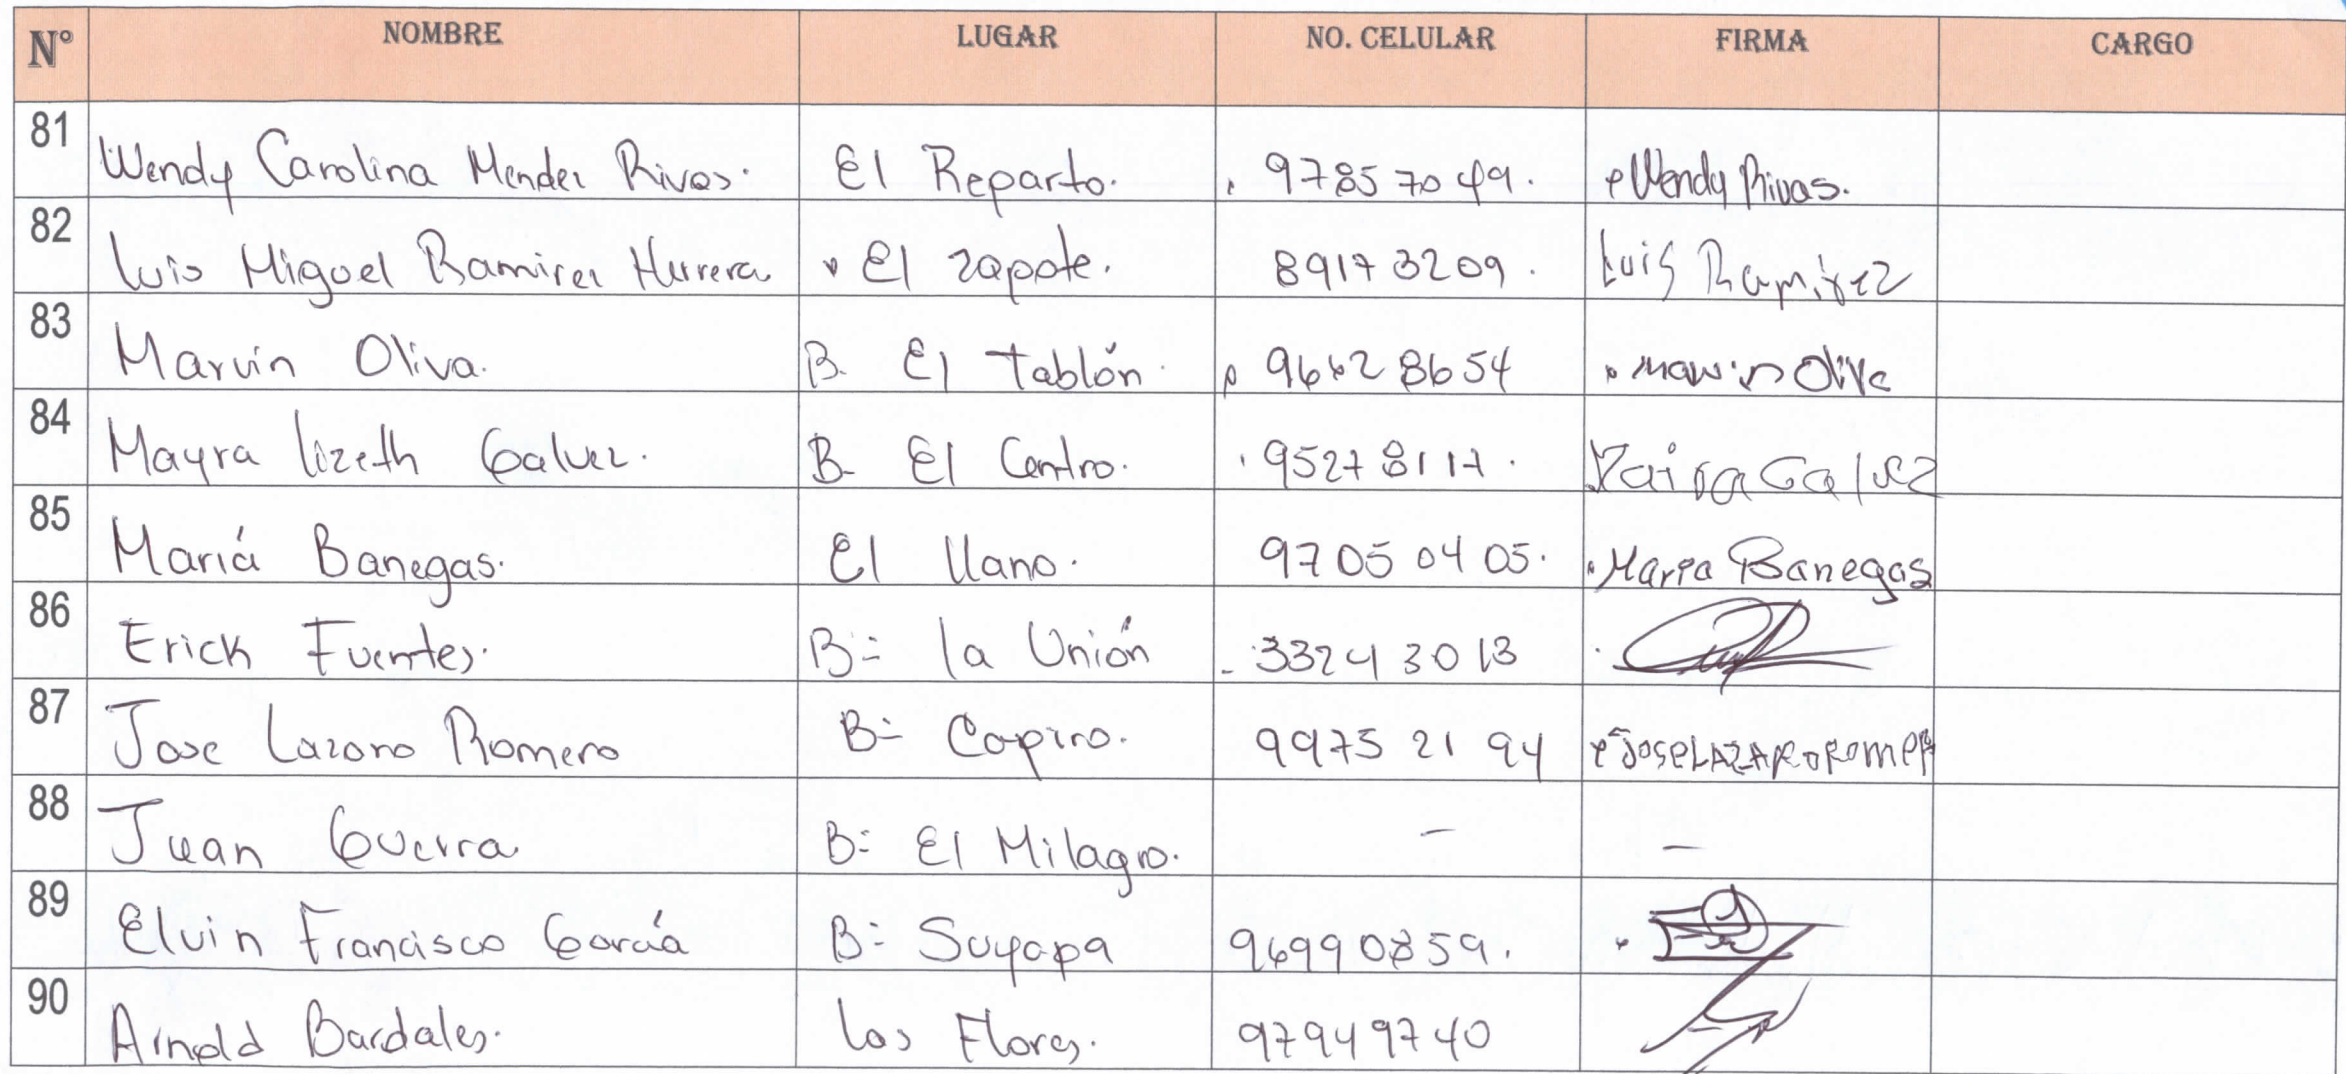 N° NOMBRE LUGAR NO. CELULAR FIRMA CARGO
81 Wendy Carolina Mendez Rivas. El Reparto. 97857049. Wendy Rivas.
82 Luis Miguel Ramirez Herrera El zapote. 89173209. Luis Ramirez
83 Marvin Oliva. B. El tablón 96628654 marvin Oliva
84 Mayra lizeth Galvez. B- El Centro. 95278117.
85 Mariá Banegas. El llano. 97050405. Maria Banegas
86 Erick Fuentes. B= la Unión 33243013
87 Jose Lazaro Romero B= Copiro. 99752194 JOSE LAZARO ROMER
88 Juan Guerra B= El Milagro. - -
89 Elvin Francisco García B= Suyapa 96990859.
90 Arnold Bardales. las Flores. 97949740